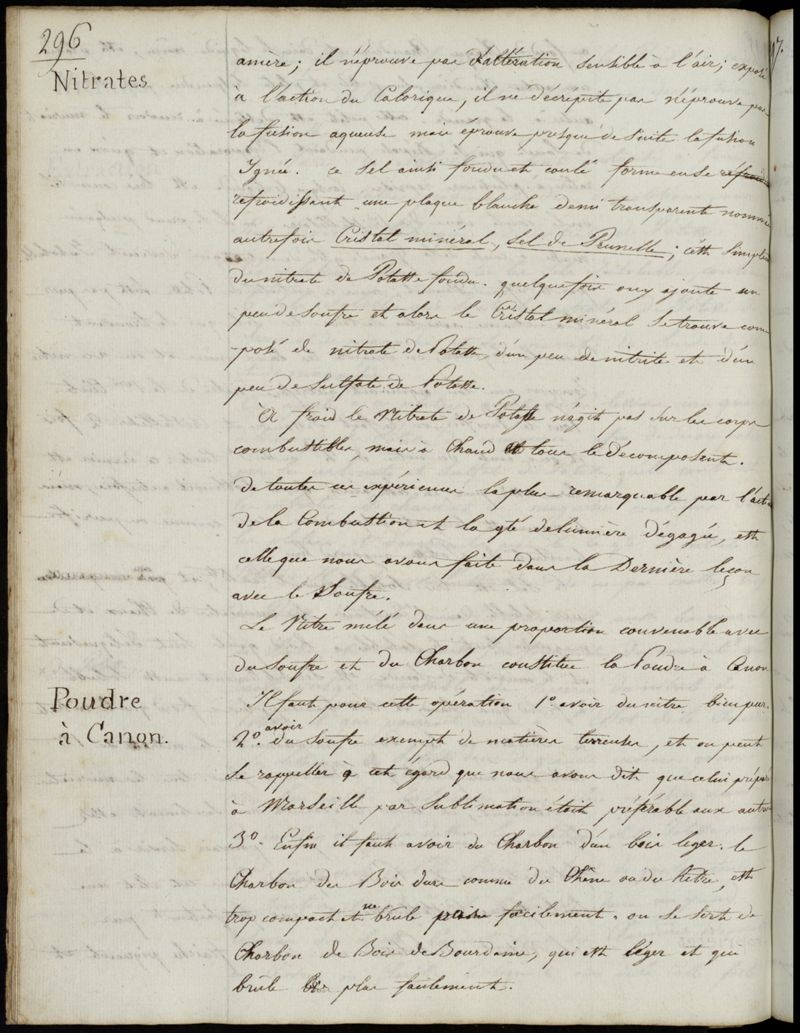 296
Nitrates
amère; il n'éprouve pas d'altération sensible à l'air; exposé
à l'action du Calorique, il ne décrepite pas n'éprouve pas
la fusion aqueuse mais éprouve presque de suite la fusion
Ignée. ce sel ainsi fondu et coulé forme en se
refroidissant une plaque blanche demi transparente nommée
autrefois Cristal minéral, Sel de Prunelle; c'est simplem
du nitrate de Potasse fondu. quelquefois on y ajoute un
peu de soufre et alors le Cristal minéral se trouve com
posé de nitrate de Potasse, d'un peu de nitrite et d'un
peu de sulfate de Potasse.
À froid le Nitrate de Potasse n'agit pas sur les corps
combustibles, mais à Chaud tous le décomposent.
de toutes ces expériences la plus remarquable par l'acti
de la Combustion et la qté de lumière dégagée, est
celle que nous avons faite dans la Dernière leçon
avec le Soufre.
Le Nitre mêlé dans une proportion convenable avec
du soufre et du Charbon constitue la Poudre à Canon
Poudre
à Canon.
Il faut pour cette opération 1º avoir du nitre bien pur.
2º. avoir du soufre exempt de matières terreuses, et on peut
se rappeller à cet égard que nous avons dit que celui préparé
à Marseille par sublimation étoit préférable aux autres
3º. Enfin il faut avoir du Charbon d'un bois leger. le
Charbon du Bois dur comme du Chêne ou du hêtre, est
trop compact et ne brûle pas facilement. on se sert de
Charbon de Bois de Bourdaine, qui est léger et qui
brûle plus facilement.